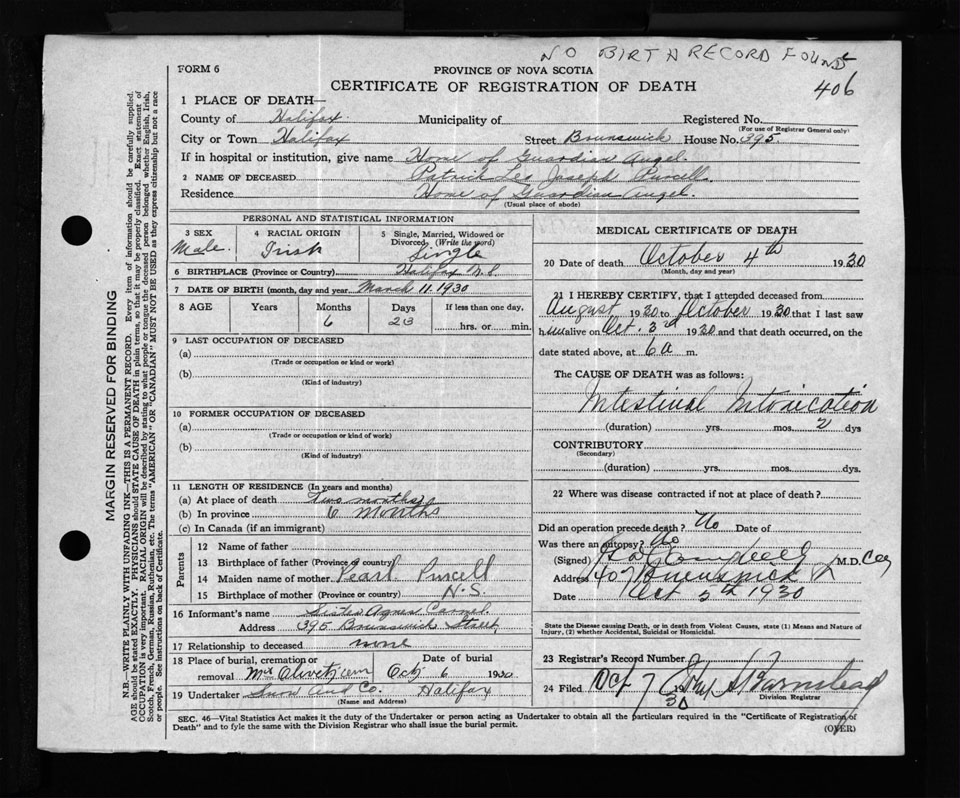 NO BIRTH RECORD FOUND
406
FORM 6
PROVINCE OF NOVA SCOTIA
CERTIFICATE OF REGISTRATION OF DEATH
1 PLACE OF DEATH—
County of Halifax Municipality of Registered No.
(For use of Registrar General only)
City or Town Halifax Street Brunswick House No. 395.
If in hospital or institution, give name Home of Guardian Angel.
2 NAME OF DECEASED Patrick Leo Joseph Purcell.
Residence Home of Guardian Angel.
(Usual place of abode)
PERSONAL AND STATISTICAL INFORMATION
3 SEX 4 RACIAL ORIGIN 5 Single, Married, Widowed or Divorced, (Write the word)
Male. Irish Single
6 BIRTHPLACE (Province or Country) Halifax N.S.
7 DATE OF BIRTH (month, day and year March 11. 1930
8 AGE Years Months Days If less than one day,
6 23 hrs. or min.
9 LAST OCCUPATION OF DECEASED
(a)
(Trade or occupation or kind or work)
(b)
(Kind of industry)
10 FORMER OCCUPATION OF DECEASED
(a)
(Trade or occupation or kind of work)
(b)
(Kind of industry)
11 LENGTH OF RESIDENCE (In years and months)
(a) At place of death Two months
(b) In province 6 Months
(c) In Canada (if an immigrant)
Parents
12 Name of father
13 Birthplace of father (Province or country)
14 Maiden name of mother Pearl Purcell
15 Birthplace of mother (Province or country) N.S.
16 Informant's name Sister Agnes Carmel
Address 395 Brunswick Street,
17 Relationship to deceased none
18 Place of burial, cremation or removal Mt Olivet Cem Date of burial Oct 6 1930
19 Undertaker Snow and Co. Halifax
(Name and Address)
MEDICAL CERTIFICATE OF DEATH
20 Date of death October 4th 1930
(Month, day and year)
21 I HEREBY CERTIFY, that I attended deceased from
August 1930 to October 1930 that I last saw
h im alive on Oct. 3rd 1930 and that death occurred, on the
date stated above, at 6 a m.
The CAUSE OF DEATH was as follows:
Intestinal Intoxication
(duration) yrs. mos. 2 dys
CONTRIBUTORY
(Secondary)
(duration) yrs. mos. dys.
22 Where was disease contracted if not at place of death?
Did an operation precede death? No Date of
Was there an autopsy? No
(Signed) M.D.
Address 407 Brunswick
Date Oct 5th 1930
State the Disease causing Death, or in death from Violent Causes, state (1) Means and Nature of Injury, (2) whether Accidental, Suicidal or Homicidal.
23 Registrar's Record Number
24 Filed Oct 7 1930
Division Registrar
SEC. 46—Vital Statistics Act makes it the duty of the Undertaker or person acting as Undertaker to obtain all the particulars required in the "Certificate of Registration of
Death" and to fyle the same with the Division Registrar who shall issue the burial permit. (OVER)
MARGIN RESERVED FOR BINDING
N.B.—WRITE PLAINLY WITH UNFADING INK—THIS IS A PERMANENT RECORD. Every item of information should be carefully supplied.
AGE should be stated EXACTLY. PHYSICIANS should STATE CAUSE OF DEATH in plain terms, so that it may be properly classified. Exact statement of
OCCUPATION is very important. RACIAL ORIGIN will be described by stating to what people or tongue the deceased person belonged whether English, Irish,
Scotch, French, German, Russian, Ruthenian, etc. The terms "AMERICAN" OR "CANADIAN" MUST NOT BE USED as they express citizenship but not a race
or people. See instructions on back of Certificate.